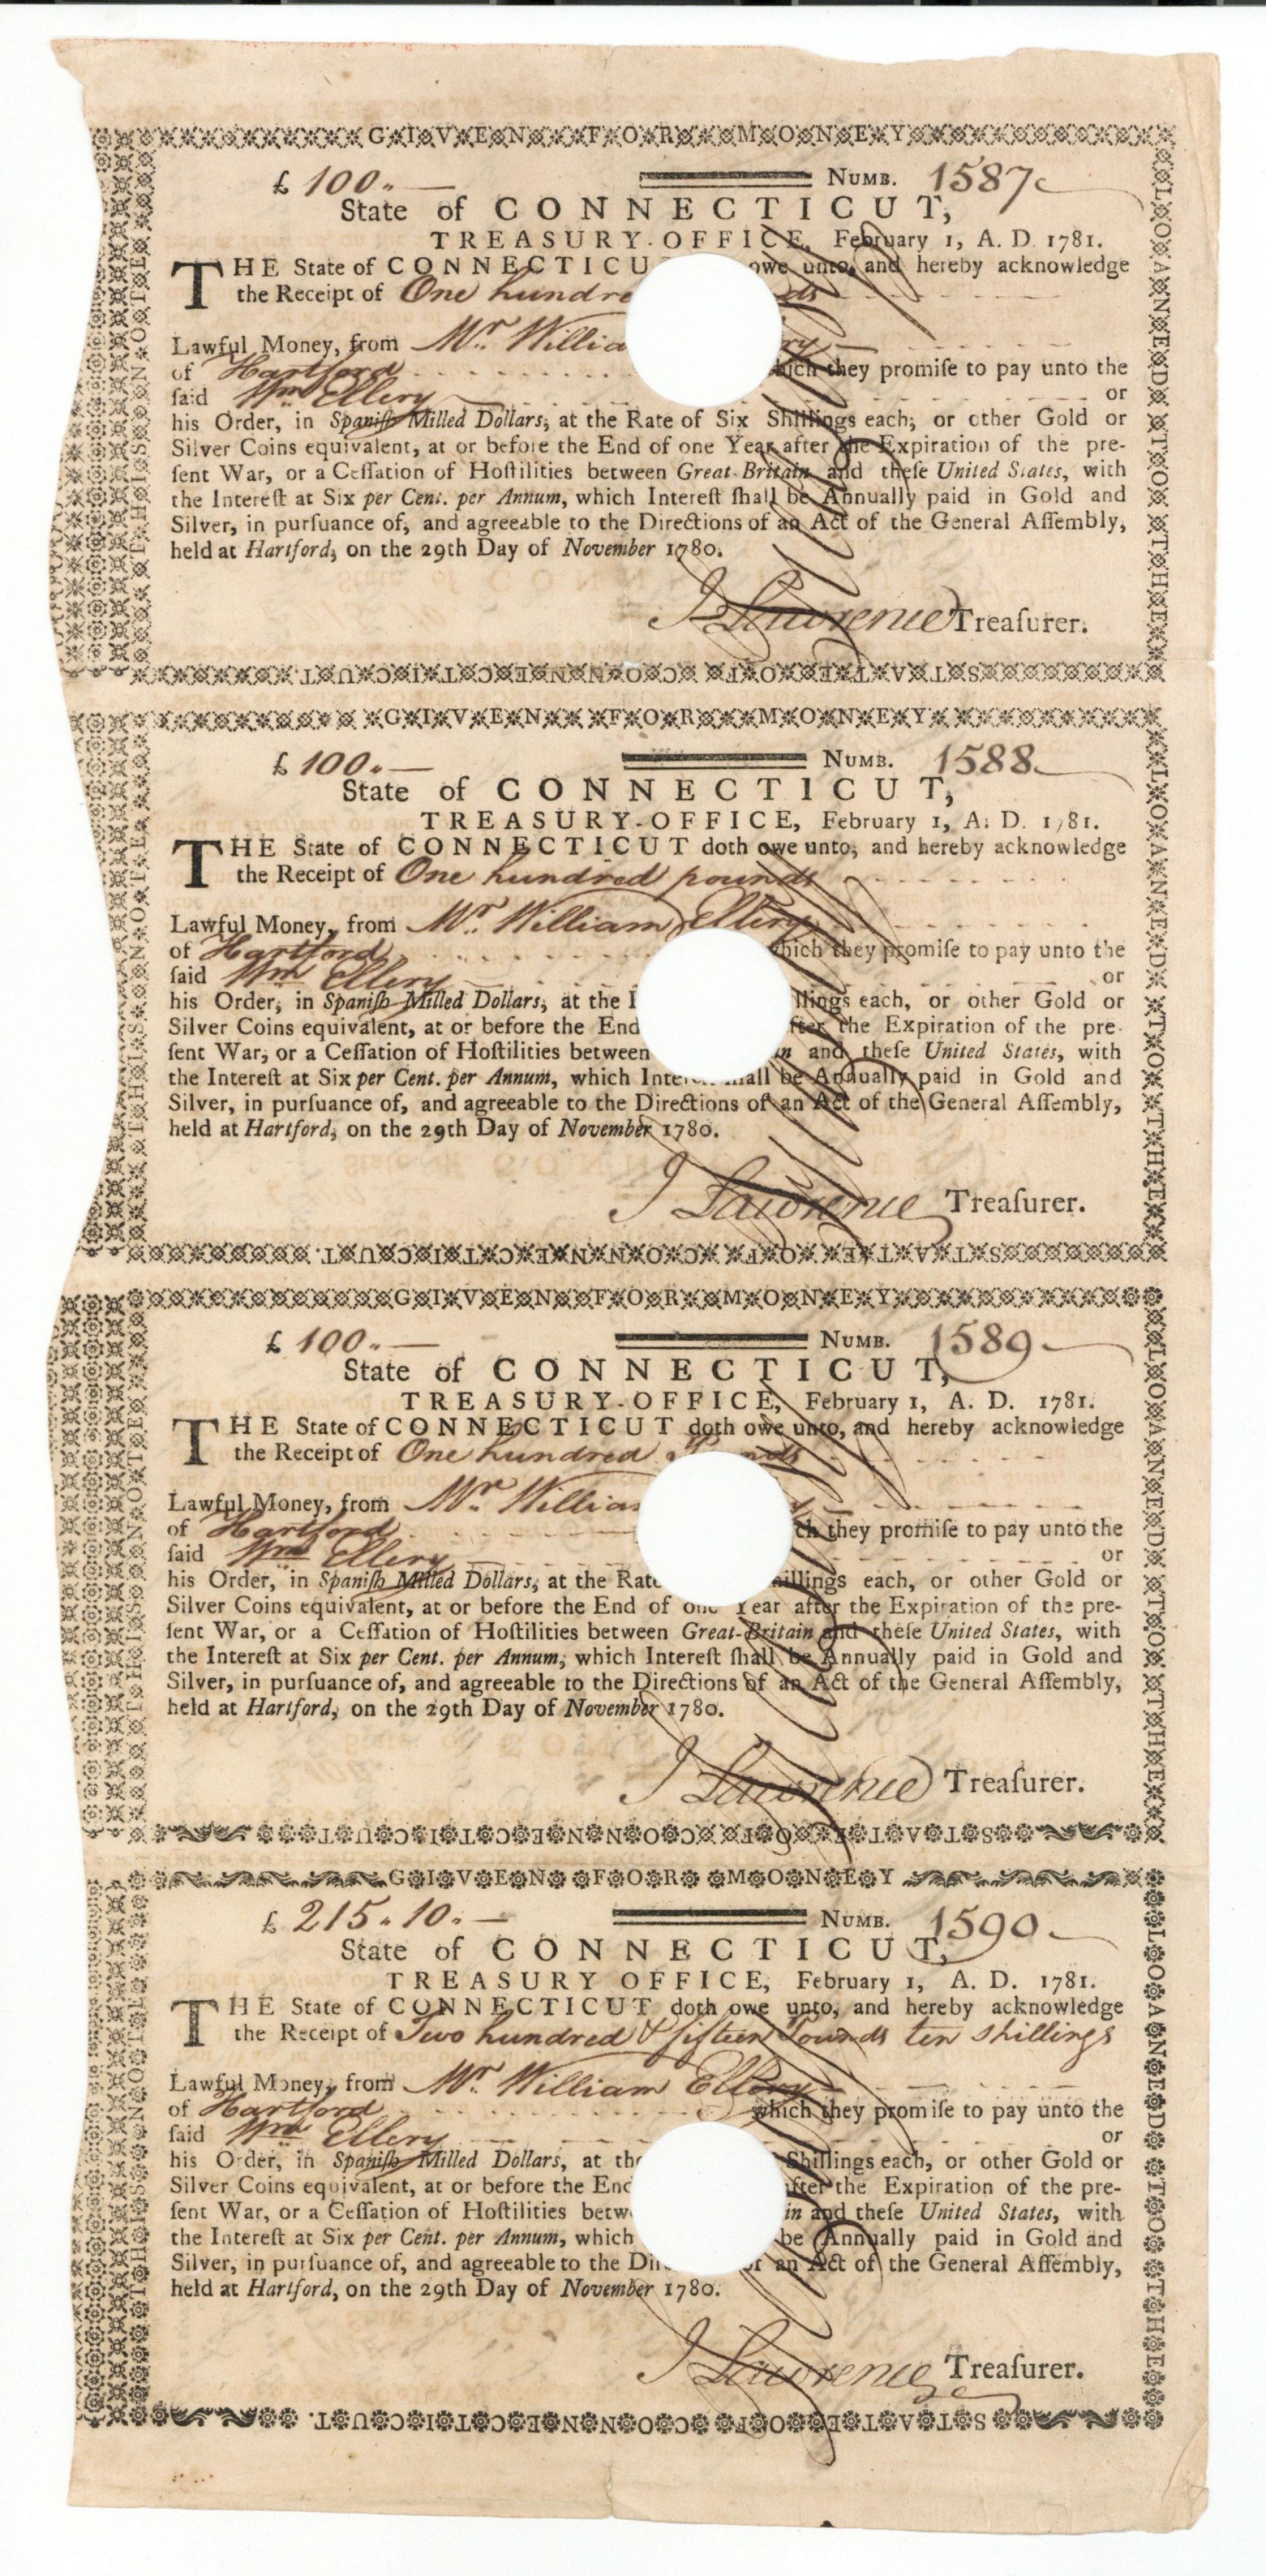 GIVEN FOR MONEY
£ 100 „ — NUMB. 1587
State of CONNECTICUT,
TREASURY-OFFICE, February 1, A. D. 1781.
THE State of CONNECTICU owe unto, and hereby acknowledge
the Receipt of One hundre ds
Lawful Money, from Mr. Willia ry
of Hartford hich they promiſe to pay unto the
ſaid Wm Ellery or
his Order, in Spaniſh Milled Dollars, at the Rate of Six Shillings each, or other Gold or
Silver Coins equivalent, at or before the End of one Year after the Expiration of the pre-
ſent War, or a Ceſſation of Hoſtilities between Great-Britain and theſe United States, with
the Intereſt at Six per Cent. per Annum, which Intereſt ſhall be Annually paid in Gold and
Silver, in purſuance of, and agreeable to the Directions of an Act of the General Aſſembly,
held at Hartford, on the 29th Day of November 1780.
J Lawrence Treaſurer.
THIS NOTE
LOANED TO THE
STATE OF CONNECTICUT.
GIVEN FOR MONEY
£ 100 „ — NUMB. 1588
State of CONNECTICUT,
TREASURY-OFFICE, February 1, A. D. 1781.
THE State of CONNECTICUT doth owe unto, and hereby acknowledge
the Receipt of One hundred pounds
Lawful Money, from Mr. William Ellery
of Hartford which they promiſe to pay unto the
ſaid Wm Ellery or
his Order, in Spaniſh Milled Dollars, at the llings each, or other Gold or
Silver Coins equivalent, at or before the End fter the Expiration of the pre-
ſent War, or a Ceſſation of Hoſtilities between in and theſe United States, with
the Intereſt at Six per Cent. per Annum, which Inter hall be Annually paid in Gold and
Silver, in purſuance of, and agreeable to the Directions of an Act of the General Aſſembly,
held at Hartford, on the 29th Day of November 1780.
J Lawrence Treaſurer.
THIS NOTE
LOANED TO THE
STATE OF CONNECTICUT.
GIVEN FOR MONEY
£ 100 „ — NUMB. 1589
State of CONNECTICUT,
TREASURY-OFFICE, February 1, A. D. 1781.
THE State of CONNECTICUT doth owe unto, and hereby acknowledge
the Receipt of One hundred Pounds
Lawful Money, from Mr. Willia
of Hartford ch they promiſe to pay unto the
ſaid Wm Ellery or
his Order, in Spaniſh Milled Dollars, at the Rate hillings each, or other Gold or
Silver Coins equivalent, at or before the End of one Year after the Expiration of the pre-
ſent War, or a Ceſſation of Hoſtilities between Great-Britain and theſe United States, with
the Intereſt at Six per Cent. per Annum, which Intereſt ſhall be Annually paid in Gold and
Silver, in purſuance of, and agreeable to the Directions of an Act of the General Aſſembly,
held at Hartford, on the 29th Day of November 1780.
J Lawrence Treaſurer.
THIS NOTE
LOANED TO THE
STATE OF CONNECTICUT.
GIVEN FOR MONEY
£ 215 „ 10 „ — NUMB. 1590
State of CONNECTICUT,
TREASURY OFFICE, February 1, A. D. 1781.
THE State of CONNECTICUT doth owe unto, and hereby acknowledge
the Receipt of Two hundred & fifteen Pounds ten shillings
Lawful Money, from Mr. William Ellery
of Hartford which they promiſe to pay unto the
ſaid Wm Ellery or
his Order, in Spaniſh Milled Dollars, at the Shillings each, or other Gold or
Silver Coins equivalent, at or before the End fter the Expiration of the pre-
ſent War, or a Ceſſation of Hoſtilities betw in and theſe United States, with
the Intereſt at Six per Cent. per Annum, which be Annually paid in Gold and
Silver, in purſuance of, and agreeable to the Di an Act of the General Aſſembly,
held at Hartford, on the 29th Day of November 1780.
J Lawrence Treaſurer.
THIS NOTE
LOANED TO THE
STATE OF CONNECTICUT.